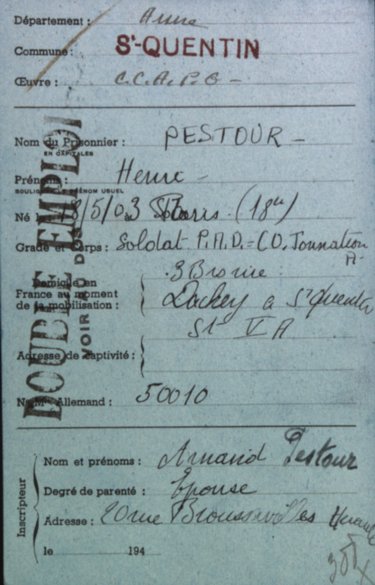 Département : Aisne
Commune : St-QUENTIN
Œuvre : C.C.A.P.G -
Nom du Prisonnier : PESTOUR -
EN CAPITALES
Prénoms : Henri -
SOULIGNER LE PRÉNOM USUEL
Né le 18/5/03 Paris (18e)
Grade et Corps : Soldat
3
Domicile en
France au moment
de la mobilisation : a St Quentin
St V A
Adresse de captivité :
No Mle Allemand : 50010
DOUBLE EMPLOI
VOIR AU DOS
Inscripteur
Nom et prénoms : Armand Pestour
Degré de parenté : Epouse
Adresse : 20 rue
le 194